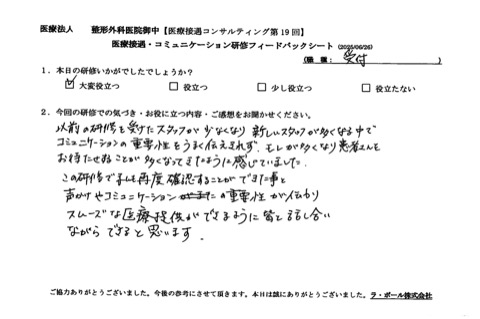 医療法人　　整形外科医院御中【医療接遇コンサルティング第19回】
医療接遇・コミュニケーション研修フィードバックシート（2025/06/26）
（職種：受付　　　）
1．本日の研修いかがでしたでしょうか？
☑ 大変役立つ　□ 役立つ　□ 少し役立つ　□ 役立たない
2．今回の研修での気づき・お役に立つ内容・ご感想をお聞かせください。
以前の研修を受けたスタッフが少なくなり 新しいスタッフが多くなる中で
コミュニケーションの重要性をうまく伝えきれず、モレが多くなり患者さんを
お待たせすることが多くなってきたように感じていました。
この研修で 再度確認することができた事と
声かけやコミュニケーションの重要性が伝わり
スムーズな医療提供ができるように皆と話し合い
ながらできると思います。
ご協力ありがとうございました。今後の参考にさせて頂きます。本日は誠にありがとうございました。ラ・ポール株式会社